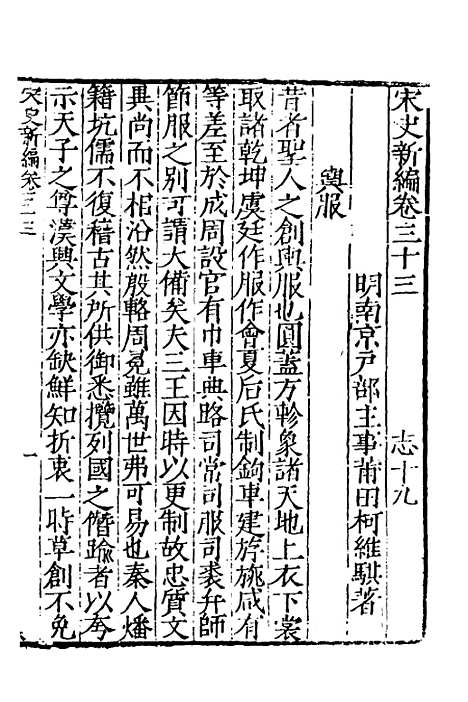 宋史新編卷三十三　志十九
明南京戸部主事莆田柯維騏著
輿服
昔者聖人之創輿服也圓蓋方軫象諸天地上衣下裳
取諸乾坤虞廷作服作會夏后氏制鉤車建旂旐咸有
等差至於成周設官有巾車典路司常司服司裘弁師
節服之别可謂大備矣夫三王因時以更制故忠質文
異尚而不相沿然殷輅周冕雖萬世弗可易也秦人燔
籍坑儒不復稽古其所供御悉攬列國之僭踰者以夸
示天子之尊漢興文學亦缺鮮知折衷一時草創不免
宋史新編卷三十三　一